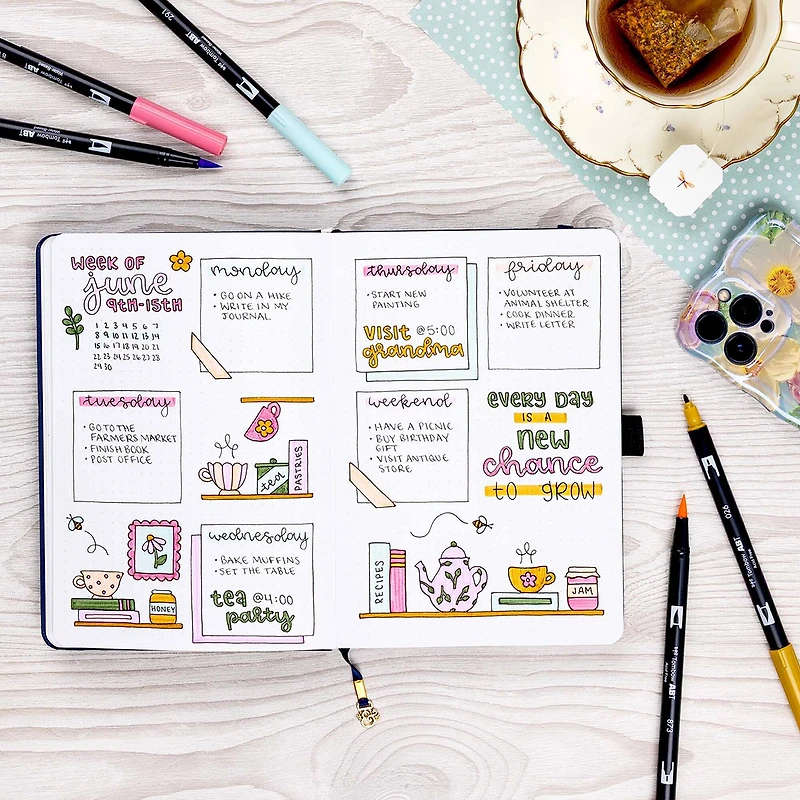 WEEK OF
june
9TH-15TH
1 2 3 4 5 6 7
8 9 10 11 12 13 14
15 16 17 18 19 20 21
22 23 24 25 26 27 28
29 30
monday
• GO ON A HIKE
• WRITE IN MY
JOURNAL
tuesday
• GO TO THE
FARMERS MARKET
• FINISH BOOK
• POST OFFICE
tea
PASTRIES
HONEY
wednesday
• BAKE MUFFINS
• SET THE TABLE
tea @4:00
party
thursday
• START NEW
PAINTING
VISIT @5:00
grandma
friday
• VOLUNTEER AT
ANIMAL SHELTER
• COOK DINNER
• WRITE LETTER
weekend
• HAVE A PICNIC
• BUY BIRTHDAY
GIFT
• VISIT ANTIQUE
STORE
EVERY DAY
IS A
NEW
chance
to GROW
RECIPES
JAM
Tombow ABT
Tombow ABT
291
Tombow ABT
926
Tombow ABT
873
Tombow ABT